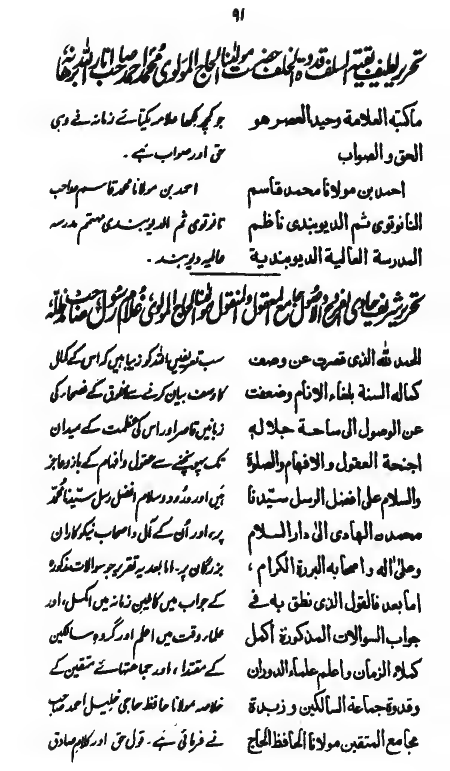 ۹۱
تحریر لطیف بقیۃ السلف قدوۃ الخلف حضرت مولٰنا الحاج المولوی محمد احمد صاحب انار اللہ برہانہ
ماکتبه العلامة وحید العصر هو
الحق والصواب
احمد بن مولانا محمد قاسم
النانوتوی ثم الدیوبندی ناظم
المدرسة العالیة الدیوبندیة
جو کچھ لکھا علامہ یکتائے زمانہ نے وہی
حق اور صواب ہے ۔
احمد بن مولانا محمد قاسم صاحب
نانوتوی ثم الدیوبندی مہتمم مدرسہ
عالیہ دیوبند ۔
تحریر شریف حاوی الفروع والاصول جامع المعقول والمنقول مولٰنا الحاج المولوی غلام رسول صاحب مدظلہ
الحمد لله الذی قصرت عن وصف
کماله السنة بلغاء الانام وضعفت
عن الوصول الی ساحة جلاله
اجنحة العقول والافهام والصلوٰة
والسلام علی افضل الرسل سیّدنا
محمدن الهادی الیٰ دار السلام
وعلیٰ اله واصحابه البررة الکرام ،
اما بعد فالقول الذی نطق به فی
جواب السوالات المذکورة اکمل
کملاء الزمان واعلم علماء الدوران
وقدوة جماعة السالکین وزبدة
مجامع المتقین مولانا الحافظ الحاج
سب تعریفیں اللہ کو زیبا ہیں کہ اس کے کمال
کا وصف بیان کرنے سے مخلوق کے فصحاء کی
زبانیں قاصر اور اس کی عظمت کے میدان
تک پہونچنے سے عقول و افہام کے بازو عاجز
ہیں اور درود و سلام افضل رسل سیّدنا محمّد
پر، اور اُن کے آل و اصحاب نیکوکاران
بزرگان پر۔ اما بعد یہ تقریر جو سوالات مذکورہ
کے جواب میں کاملین زمانہ میں اکمل، اور
علماء وقت میں اعلم اور گروہ سالکین
کے مقتداء، اور جماعتہائے متقین کے
خلاصہ مولانا حافظ حاجی خلیل احمد صاحب
نے فرمائی ہے ۔ قول حق اور کلام صادق